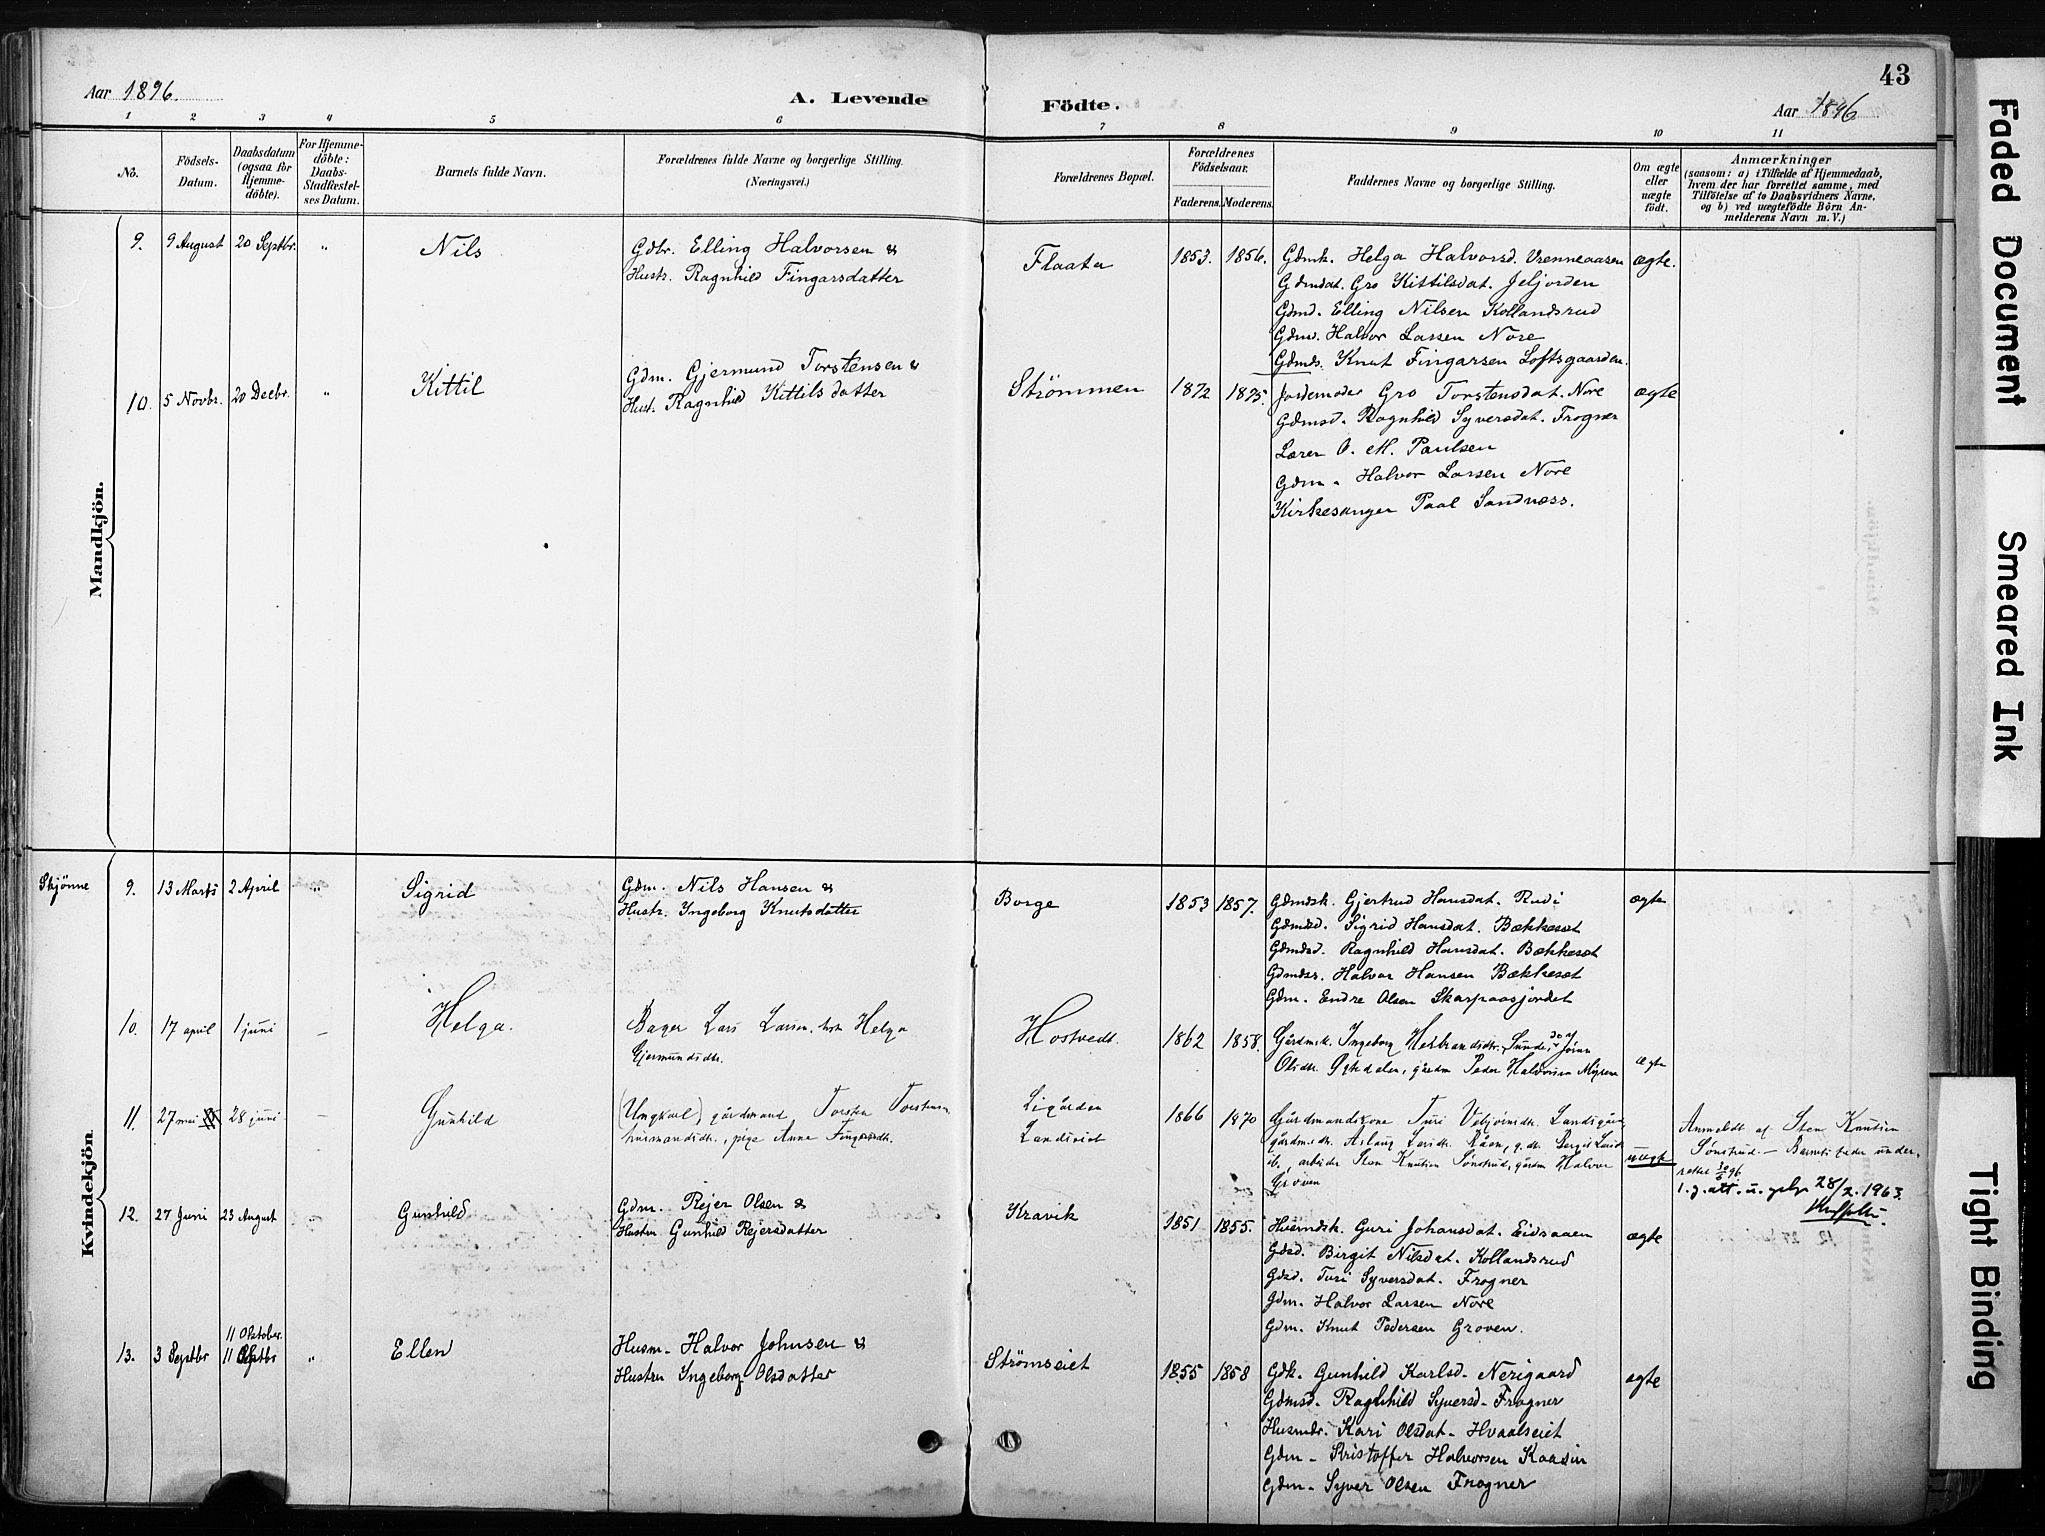 43
Aar 1896.
A. Levende Födte.
Aar 1896
1 2 3 4 5 6 7 8 9 10 11
No.
Födsels-Datum.
Daabsdatum (ogsaa for Hjemmedöbte).
For Hjemmedöbte: Daabs-Stadfæstelses Datum.
Barnets fulde Navn.
Forældrenes fulde Navne og borgerlige Stilling.
(Næringsvei.)
Forældrenes Bopæl.
Forældrenes Födselsaar.
Faderens. Moderens.
Faddernes Navne og borgerlige Stilling.
Om ægte eller uægte födt.
Anmærkninger
(saasom: a) i Tilfælde af Hjemmedaab, hvem der har forrettet samme, med Tilföielse af to Daabsvidners Navne, og b) ved uægtefödte Börn Anmelderens Navn m. V.)
Mandkjön.
9. 9 August 20 Septbr. " Nils Gdbr. Elling Halvorsen & Flaata 1853. 1856. Gdmk. Helga Halvorsd. Vrenneaasen ægte.
Hustr. Ragnhild Fingarsdatter Gdmdat. Gro Kittilsdat. Jeljorden
Gdmd. Elling Nilsen Kollandsrud
Gdmd. Halvor Larsen Nore
Gdmds. Knut Fingarsen Loftsgaarden.
10. 5 Novbr. 20 Decbr. " Kittil Gdm. Gjermund Torstensen & Strømmen 1872 1875. Jordemoder Gro Torstensdat. Nore ægte
Hust. Ragnhild Kittilsdatter Gdmsd. Ragnhild Syversdat. Frogner
Lærer O. M. Paulsen
Gdm. Halvor Larsen Nore
Kirkesanger Paal Sandnæss.
Kvindekjön
Skjønne 9. 13 Marts 2 April " Sigrid Gdm. Nils Hansen & Borge 1853 1857. Gdmdsk. Gjertrud Hansdat. Rudi ægte
Hustr. Ingeborg Knutsdatter Gdmdsd. Sigrid Hansdat. Bækkeset
Gdmdsd. Ragnhild Hansdat. Bækkeset
Gdmdsr. Halvor Hansen Bækkeset
Gdm. Endre Olsen Skarpaasjordet
10. 17 april 1 juni – Helga. Bager Lars Larsen, hst. Helga Hostvedt. 1862 1858. Gårdmk. Ingeborg Herbrandsdtr. Sunde, do Jøran
Gjermundsdtr. Olsdtr. Ørkdalen, gårdm Peder Halvorsen Myren ægte
11. 27 mai 28 juni – Gunhild (Ungkarl) gårdmand Torsten Torstensen Ligården 1866 1870 Gårdmandskone Turi Vebjørnsdtr. Landsgård
husmandsdtr., pige Anne Fingarsdtr. Landsviet gårdm.dtr. Aslaug Larsdtr. Råen, g.dtr. Bergit Larsdtr. uægte
ib., arbeider Sten Knutsen Sønstrud, gårdm Halvor
Groven
Anmeldt af Sten Knutsen
Sønstrud. – Barnets fader under-
rettet 30/6 96
1. g. att. u. 28/2. 1963.
12. 27 Juni 23 August Gunhild Gdm. Rejer Olsen & Kravik 1851 1855. Husmdsk. Guri Johansdat. Eidsaaen ægte
Hustru Gunhild Rejersdatter Gdsd. Birgit Nilsdat. Kollandsrud
Gdsd. Turi Syversdat. Frogner
Gdm. Halvor Larsen Nore
Gdm. Knut Pedersen Groven.
11 Oktober.
13. 3 Septbr 11 Septbr " Ellen Husm. Halvor Johnsen & Strømseiet 1855 1858 Gdk. Gunhild Karlsd. Nerigaard ægte
Hustru Ingeborg Olsdatter Gdmsd. Ragnhild Syversd. Frogner
Husmdr. Kari Olsdat. Hvaalseiet
Gdm – Kristoffer Halvorsen Kaasin
Gdm – Syver Olsen Frogner
Faded Document
Smeared Ink
Tight Binding